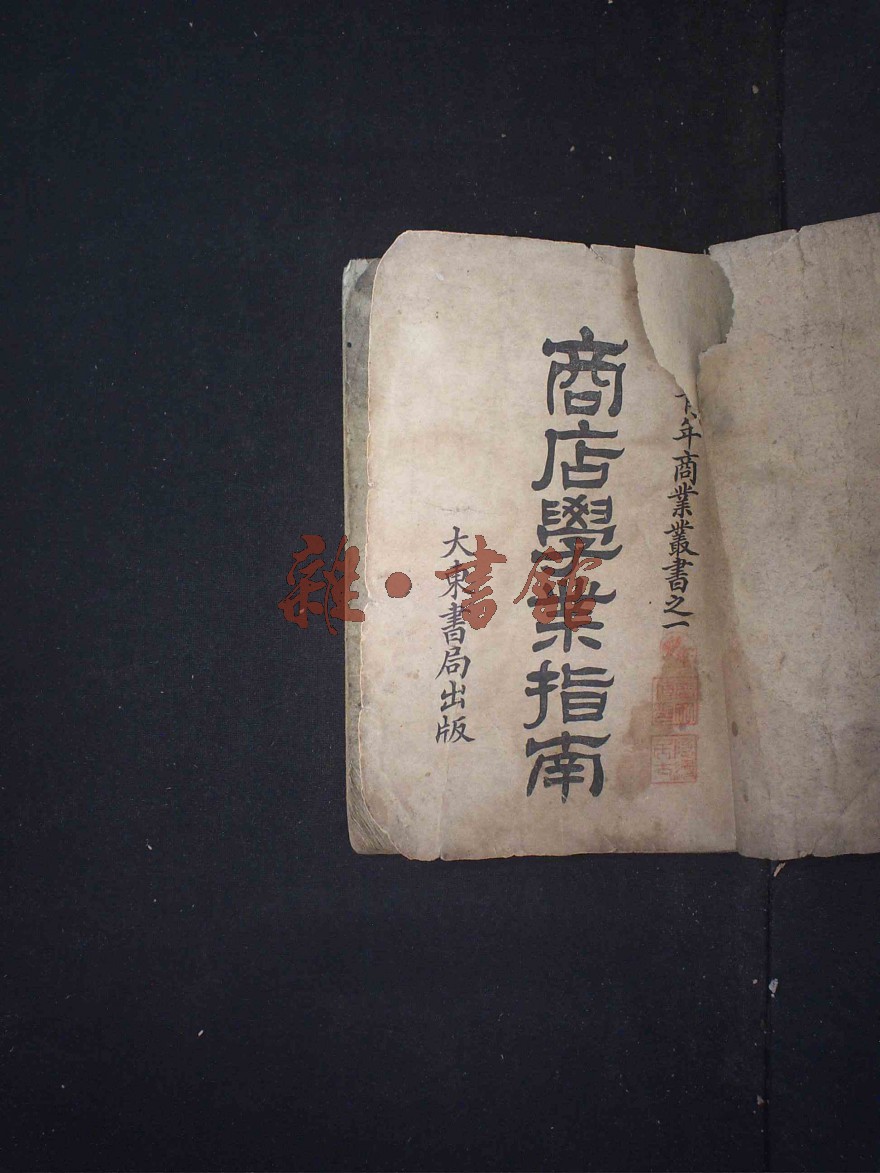 年商業叢書之一
商店學業指南
大東書局出版
雜·書館